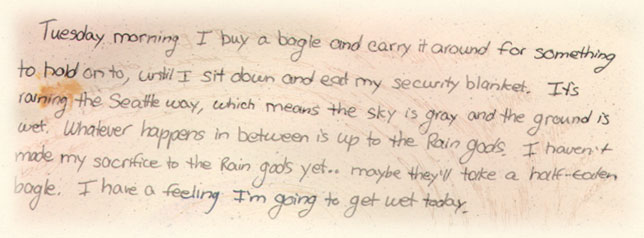 Tuesday morning I buy a bagle and carry it around for something
to hold on to, until I sit down and eat my security blanket. It's
raining the Seattle way, which means the sky is gray and the ground is
wet. Whatever happens in between is up to the Rain gods. I haven't
made my sacrifice to the Rain gods yet.. maybe they'll take a half-eaten
bagle. I have a feeling I'm going to get wet today.